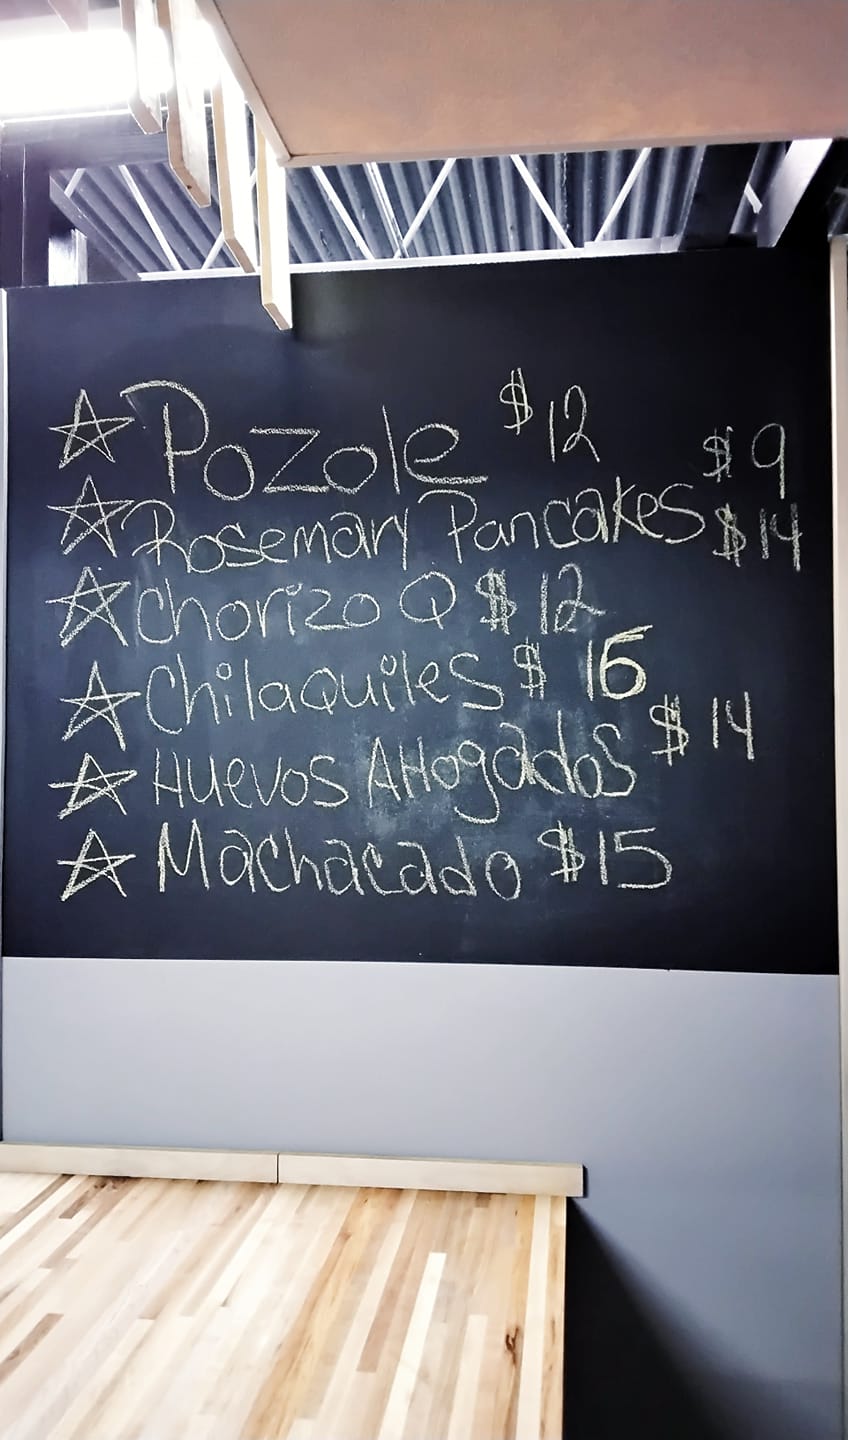 ☆ Pozole $12
☆ Rosemary Pancakes $9 $14
☆ Chorizo Q $12
☆ Chilaquiles $16
☆ Huevos Ahogados $14
☆ Machacado $15